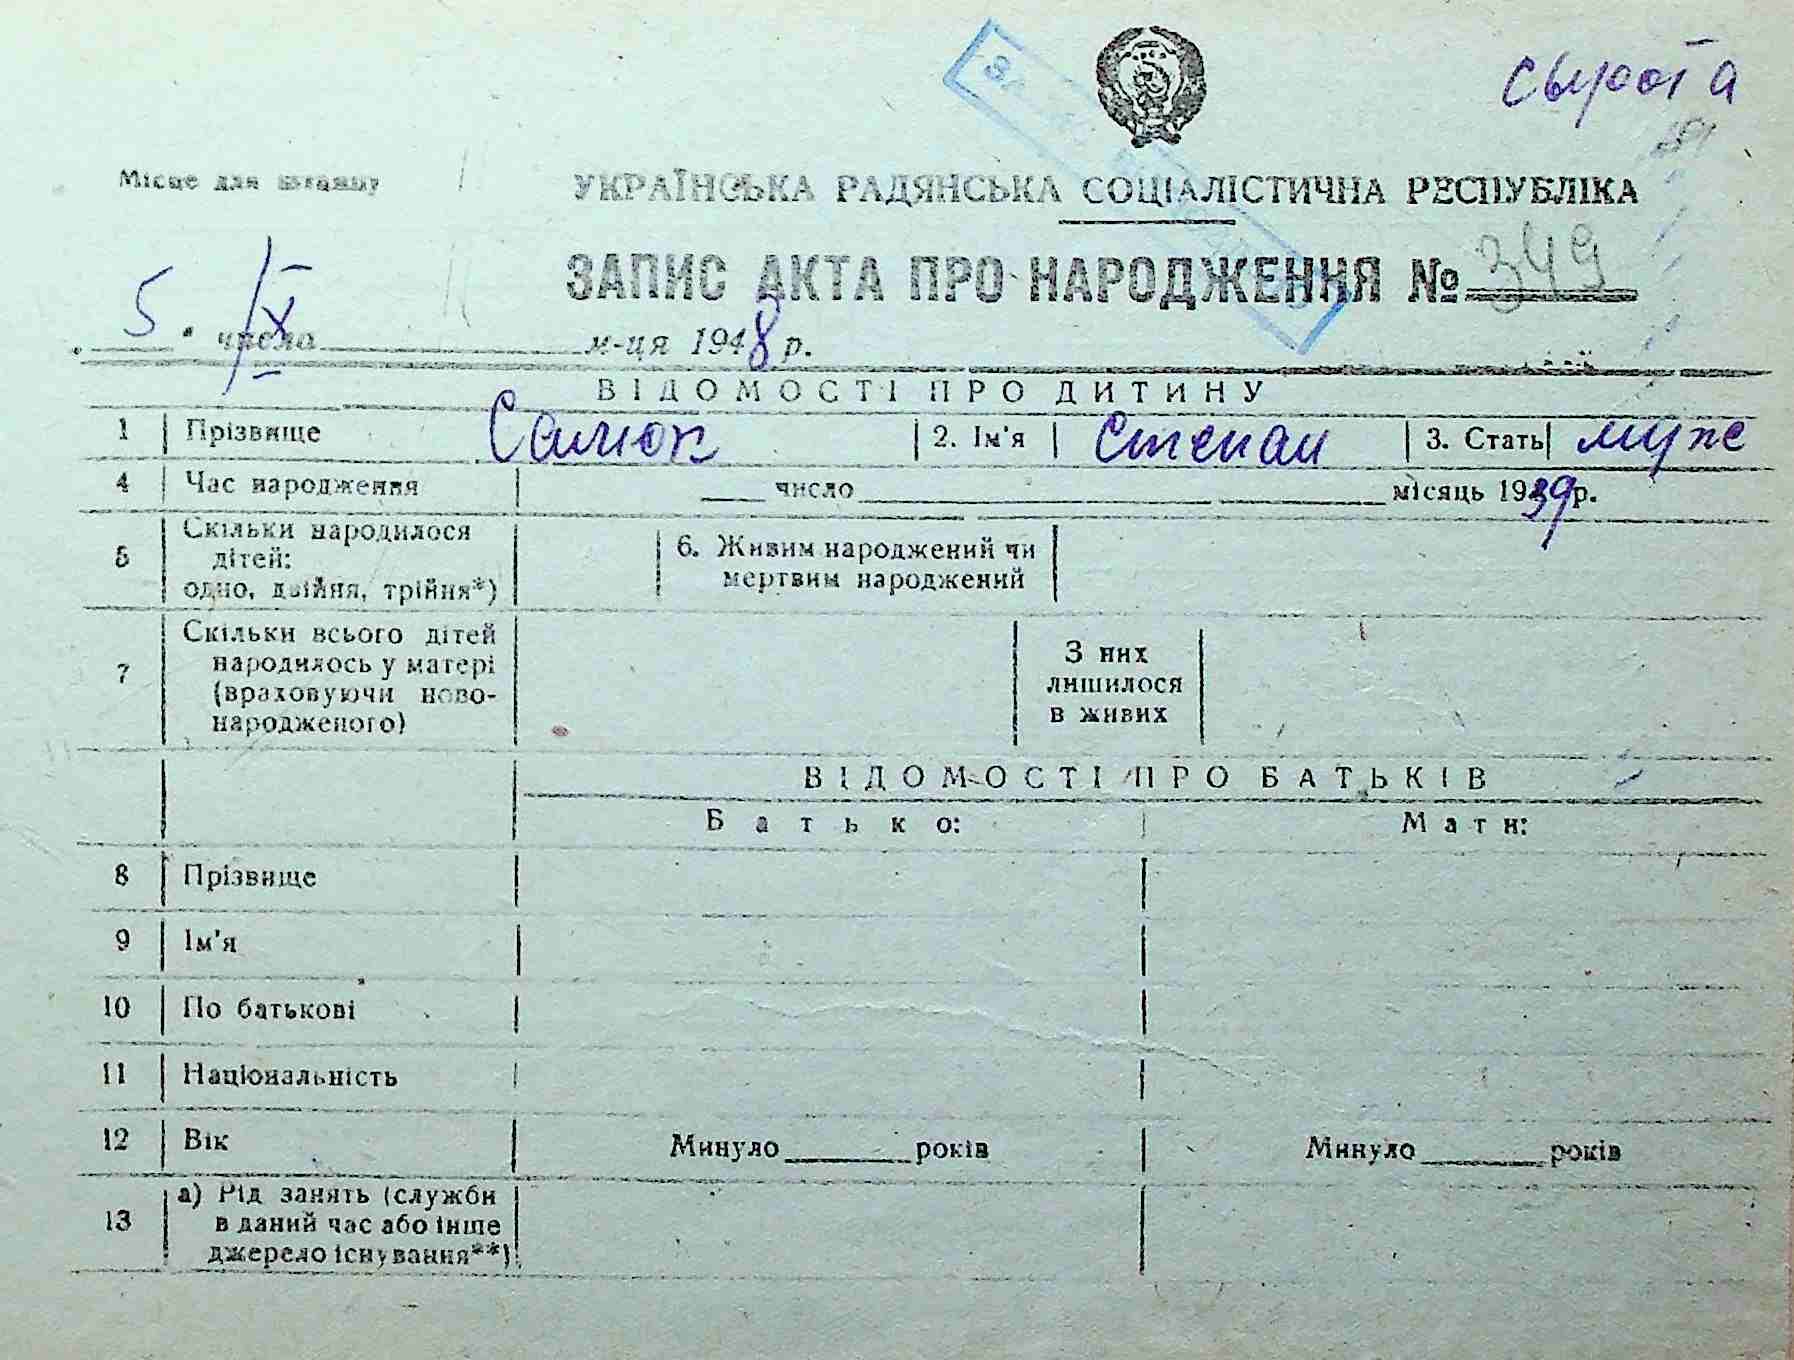 сырота
Місце для штампу
УКРАЇНСЬКА РАДЯНСЬКА СОЦІАЛІСТИЧНА РЕСПУБЛІКА
ЗАПИС АКТА ПРО НАРОДЖЕННЯ № 349
5. числа X м-ця 1948 р.
ВІДОМОСТІ ПРО ДИТИНУ
1 Прізвище Салюк 2. Ім'я Степан 3. Стать муже
4 Час народження число місяць 1939 р.
5 Скільки народилося дітей: одно, двійня, трійня*)
6. Живим народжений чи мертвим народжений
7 Скільки всього дітей народилось у матері (враховуючи ново-народженого)
З них лишилося в живих
ВІДОМОСТІ ПРО БАТЬКІВ
Батько: Мати:
8 Прізвище
9 Ім'я
10 По батькові
11 Національність
12 Вік Минуло років Минуло років
13 а) Рід занять (служби в даний час або інше джерело існування**)